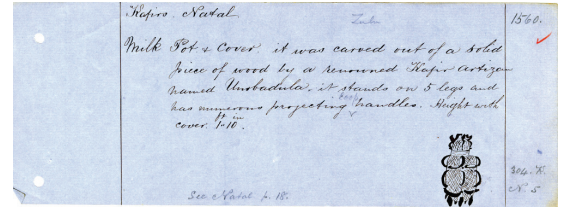 Kafirs. Natal Zulu 1560.
Milk Pot & Cover it was carved out of a solid
piece of wood by a renowned Kafir artizan
named Unobadula, it stands on 5 legs and
has numerous projecting handles. Height with
cover 1 ft 10 in.
304. K.
N. 5
See Natal p. 18.